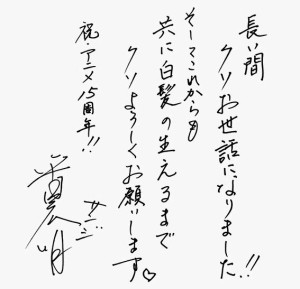 長い間
クソお世話になりました!!
そしてこれからも
共に白髪の生えるまで
クソよろしくお願いします♡
祝・アニメ15周年!!
サンジ
平田広明